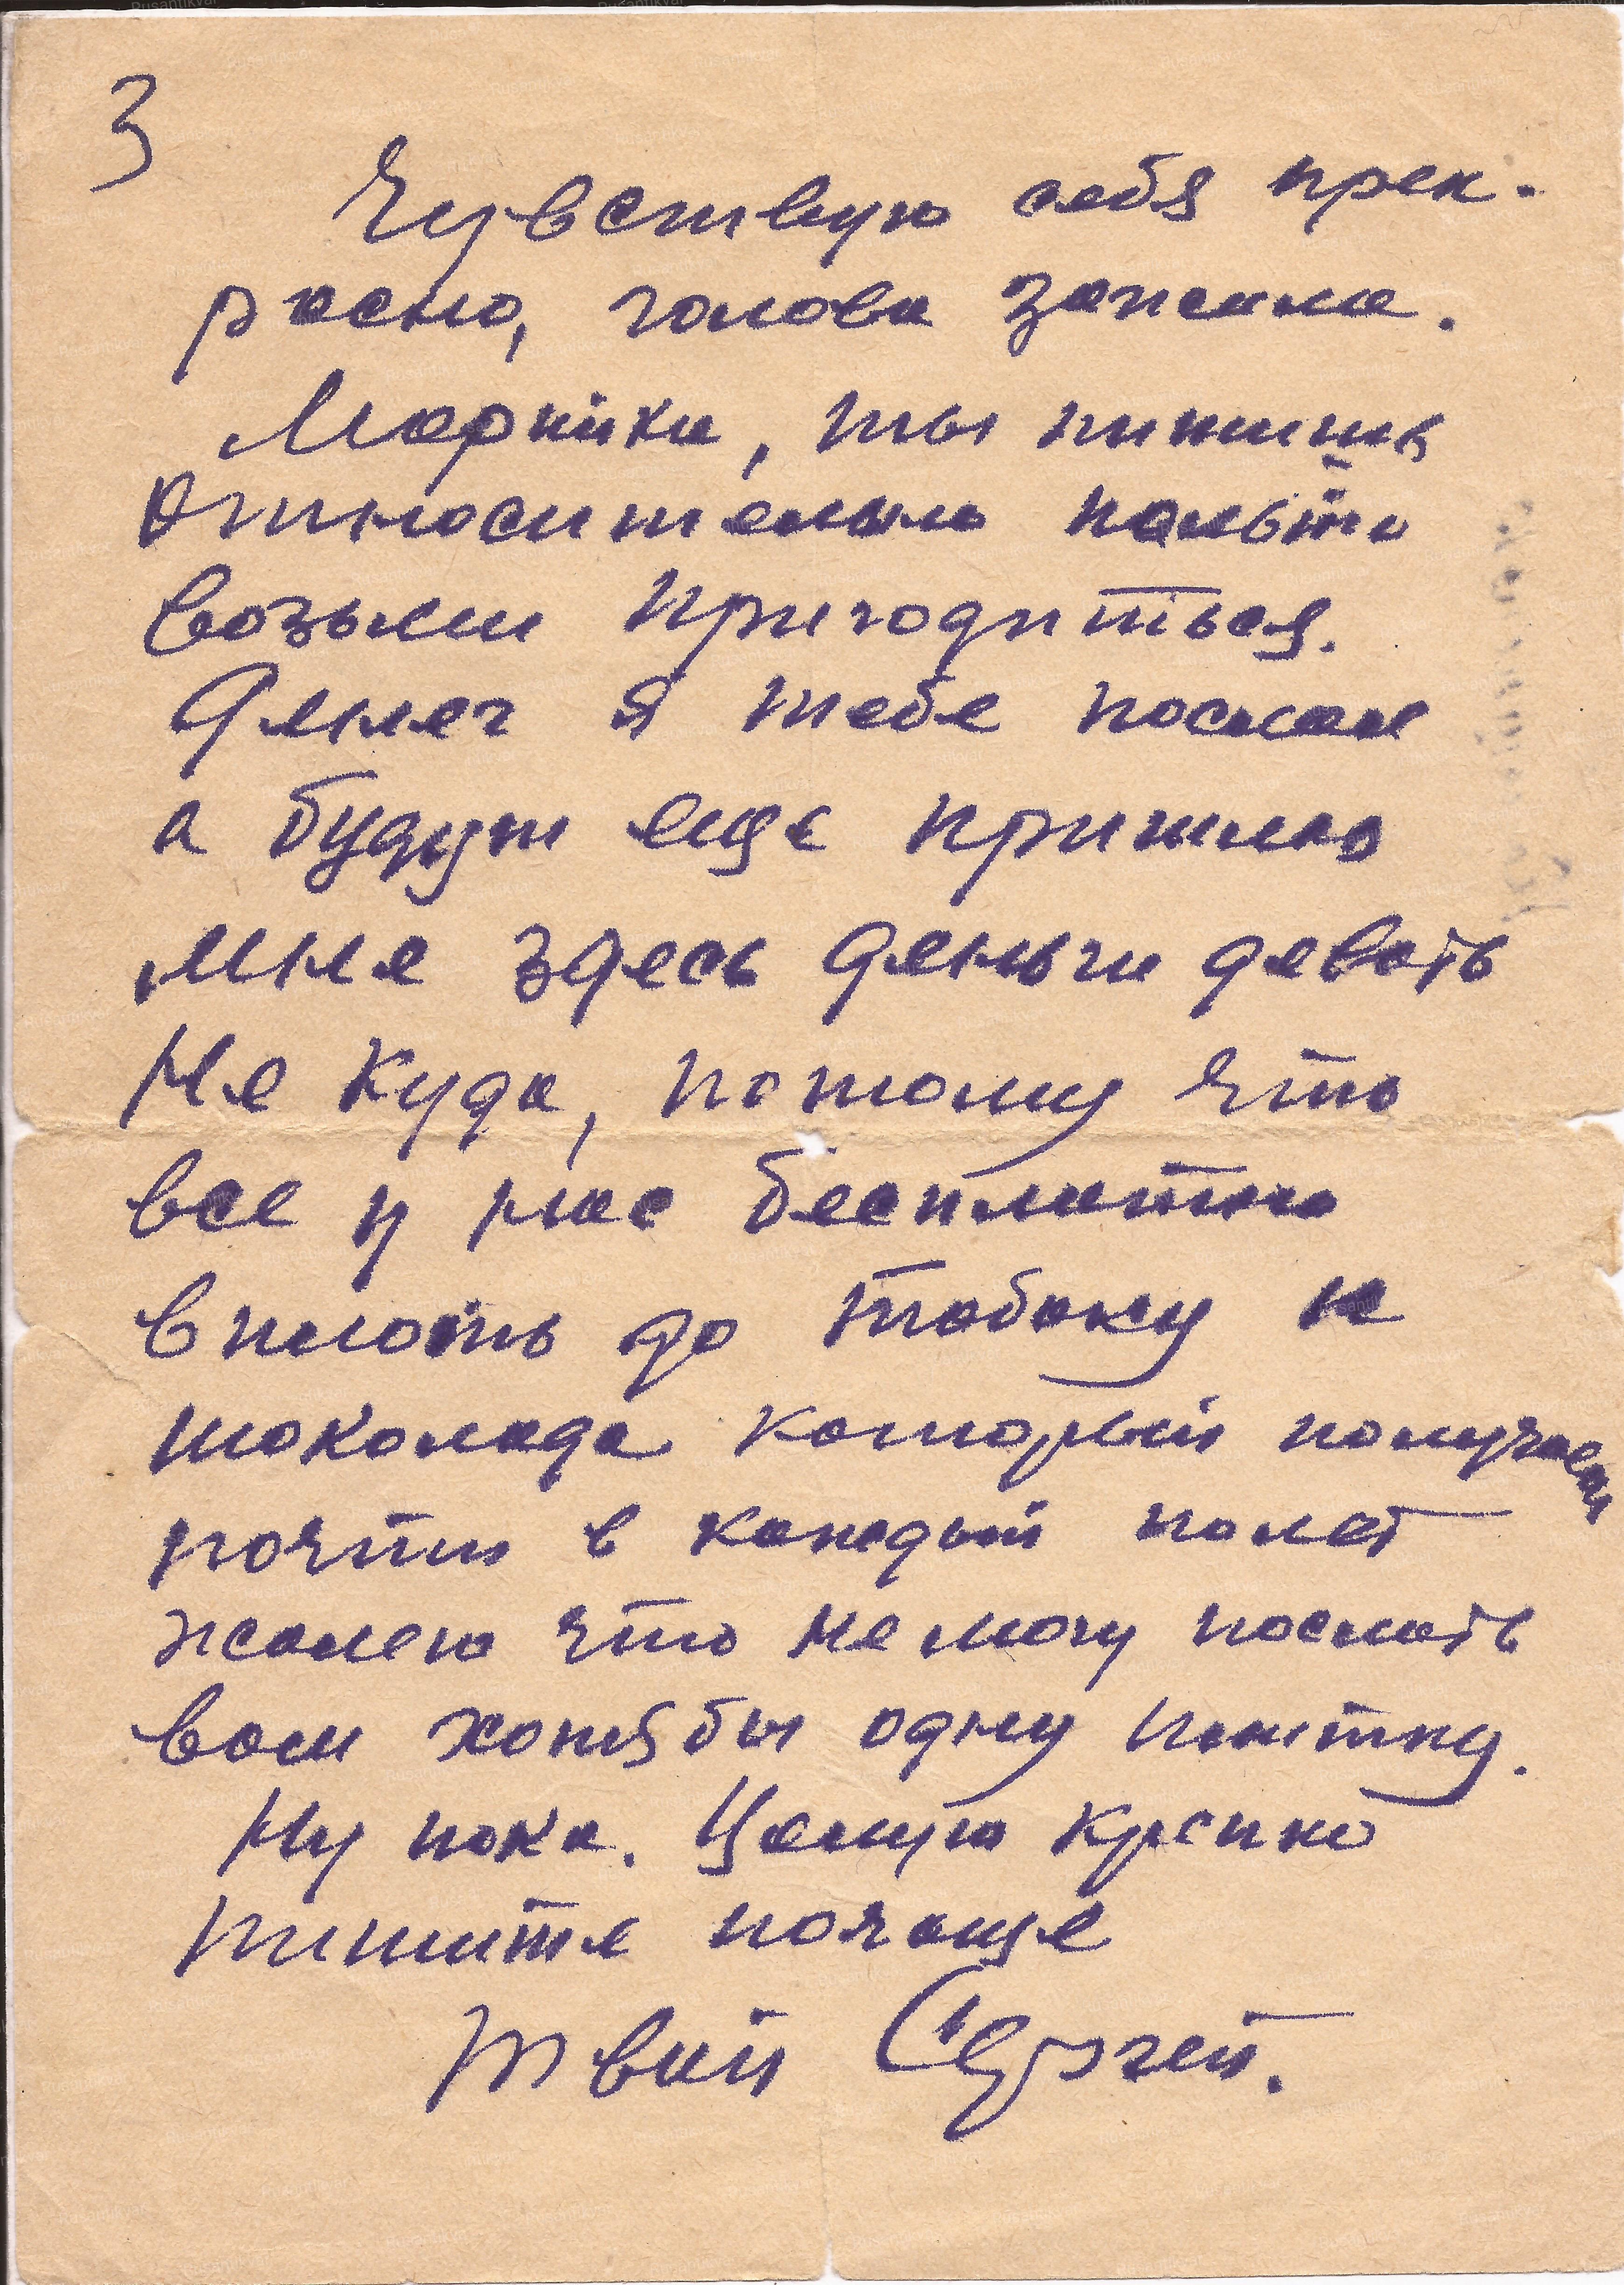 3
Чувствую себя прек-
расно, голова зажила.
Марийка, ты пишишь
относительно пальто
возьми пригодиться.
Денег я тебе послал
а будут еще пришлю
мне здесь деньги девать
не куда, потому что
все у нас бесплатно
вплоть до табаку и
шоколада который получаем
почти в каждый полет
жалею что не могу послать
вам хотя бы одну плитку.
Ну пока. Целую крепко
пишите почаще
твой Сергей.